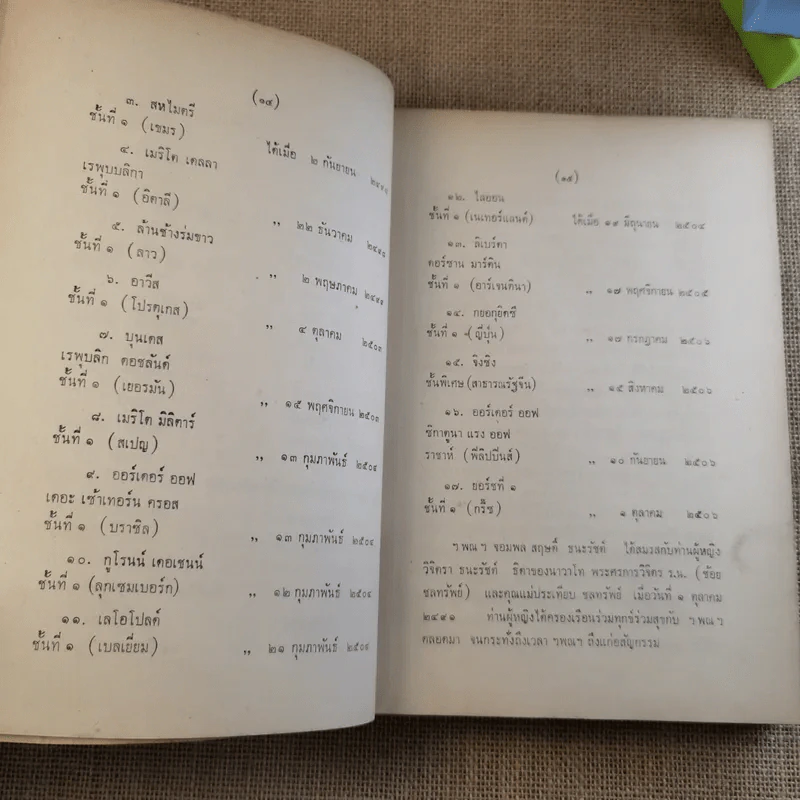 (๑๔)
๓. สหไมตรี
ชั้นที่ ๑ (เขมร) ได้เมื่อ ๒ กันยายน
๔. เมริโต เดลลา
เรพุบบลิกา
ชั้นที่ ๑ (อิตาลี) ,, ๒๒ ธันวาคม
๕. ล้านช้างร่มขาว
ชั้นที่ ๑ (ลาว) ,, ๒ พฤษภาคม
๖. อาวีส
ชั้นที่ ๑ (โปรตุเกส) ,, ๔ ตุลาคม ๒๕๐๓
๗. บุนเดส
เรพุบลิก ดอชลันด์
ชั้นที่ ๑ (เยอรมัน) ,, ๑๕ พฤศจิกายน ๒๕๐๓
๘. เมริโต มิลิตาร์
ชั้นที่ ๑ (สเปญ) ,, ๑๓ กุมภาพันธ์ ๒๕๐๔
๙. ออร์เดอร์ ออฟ
เดอะ เซ้าเทอร์น ครอส
ชั้นที่ ๑ (บราซิล) ,, ๑๓ กุมภาพันธ์ ๒๕๐๔
๑๐. กูโรนน์ เดอเชนน์
ชั้นที่ ๑ (ลุกเซมเบอร์ก) ,, ๑๒ กุมภาพันธ์ ๒๕๐๔
๑๑. เลโอโปลด์
ชั้นที่ ๑ (เบลเยี่ยม) ,, ๒๑ กุมภาพันธ์ ๒๕๐๔
(๑๕)
๑๒. ไลออน
ชั้นที่ ๑ (เนเทอร์แลนด์) ได้เมื่อ ๑๙ มิถุนายน ๒๕๐๔
๑๓. ลิเบร์ตา
ดอร์ซาน มาร์ติน
ชั้นที่ ๑ (อาร์เจนตินา) ,, ๑๗ พฤศจิกายน ๒๕๐๕
๑๔. กยอกุยิตซี
ชั้นที่ ๑ (ญี่ปุ่น) ,, ๑๘ กรกฎาคม ๒๕๐๖
๑๕. จิงซิง
ชั้นพิเศษ (สาธารณรัฐจีน) ,, ๑๕ สิงหาคม ๒๕๐๖
๑๖. ออร์เดอร์ ออฟ
ซิกาตูนา แรง ออฟ
ราชาห์ (ฟิลิปปีนส์) ,, ๑๐ กันยายน ๒๕๐๖
๑๗. ยอร์ชที่ ๑
ชั้นที่ ๑ (กรีซ) ,, ๑ ตุลาคม ๒๕๐๖
ฯพณฯ จอมพล สฤษดิ์ ธนะรัชต์ ได้สมรสกับท่านผู้หญิง
วิจิตรา ธนะรัชต์ ธิดาของนาวาโท พระศรการวิจิตร ร.น. (ช้อย
ชลทรัพย์) และคุณแม่ประเทียบ ชลทรัพย์ เมื่อวันที่ ๑ ตุลาคม
๒๔๙๑ ท่านผู้หญิงได้ครองเรือนร่วมทุกข์ร่วมสุขกับ ฯพณฯ
ตลอดมา จนกระทั่งถึงเวลา ฯพณฯ ถึงแก่อสัญกรรม